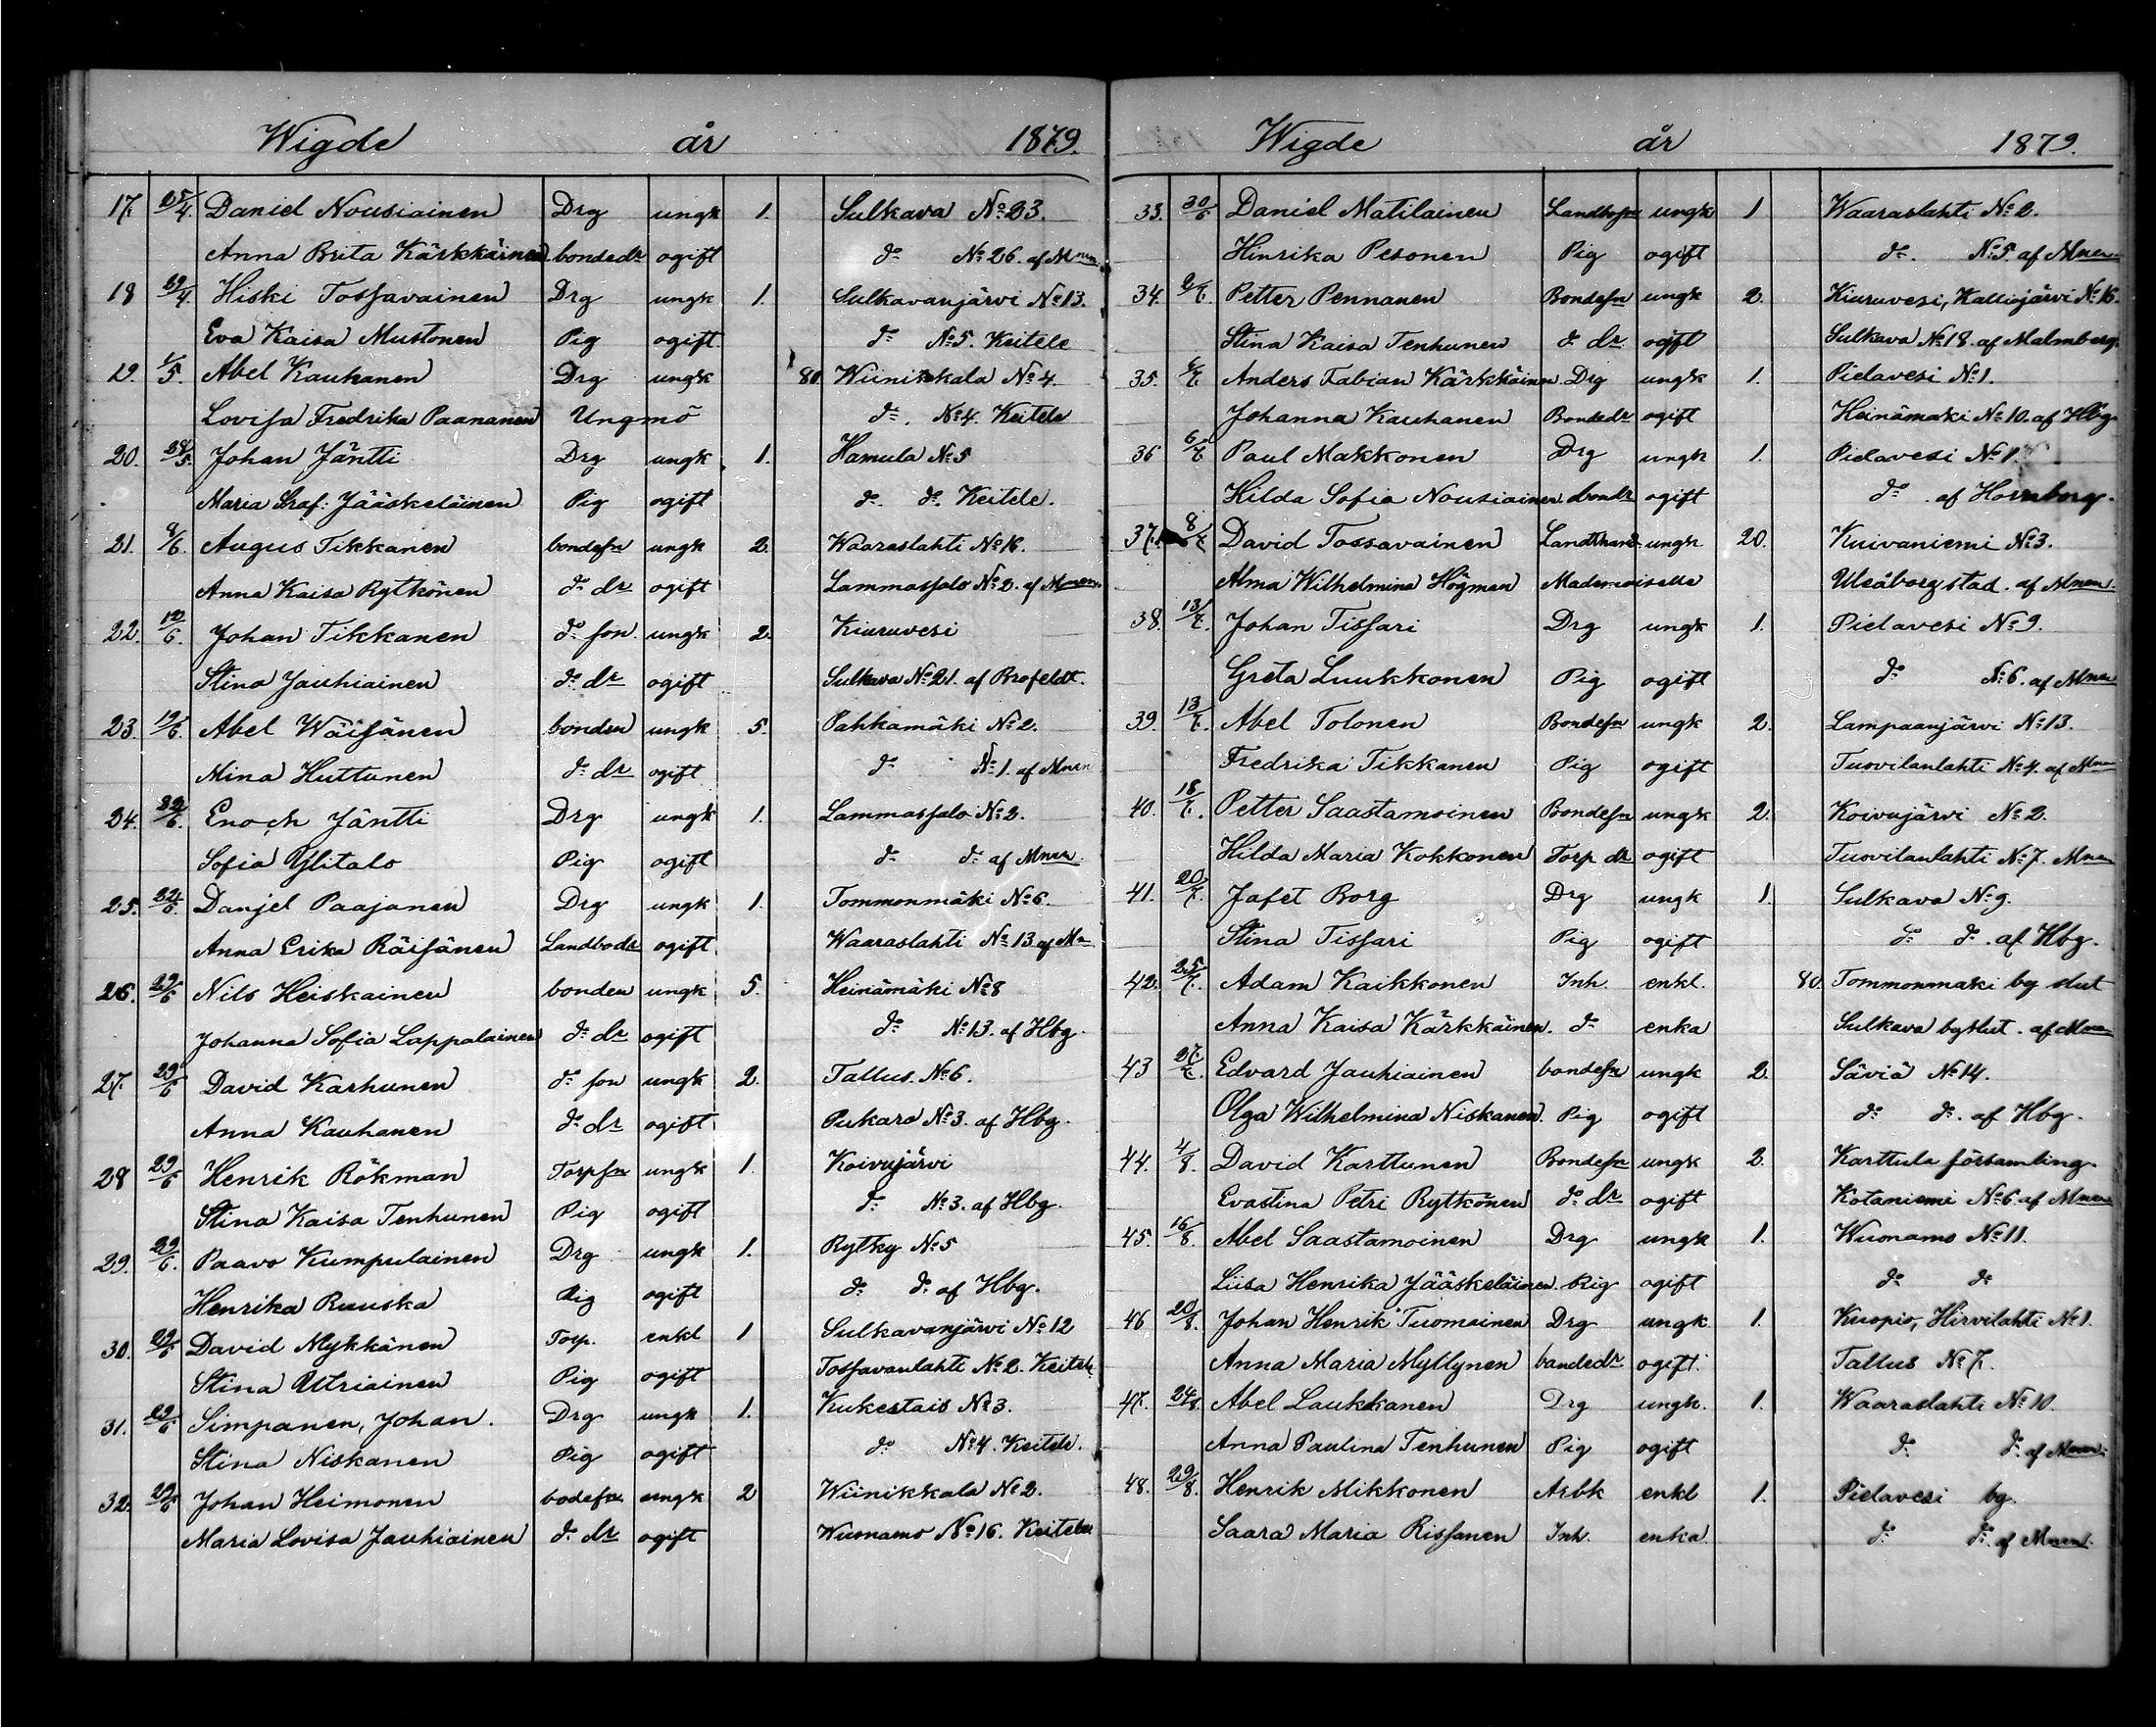 Wigde år 1879.
17. 25/4. Daniel Nousiainen Drg ungk 1. Sulkava No 23.
Anna Brita Kärkkäinen bondedr ogift do No 26. af Mnen
18 29/4. Hiski Tossavainen Drg ungk 1. Sulkavanjärvi No 13.
Eva Kaisa Mustonen Pig ogift. do No 5. Keitele
19. 1/5. Abel Kauhanen Drg ungk 80. Wiinikkala No 4.
Lovisa Fredrika Paananen Ungmö do. No 4. Keitele
20. 28/5. Johan Jäntti Drg ungk 1. Hamula No 5
Maria Graf: Jääskeläinen Pig ogift do. do. Keitele.
21. 8/6. Augus Tikkanen bondesn ungk 2. Waaraslahti No 16.
Anna Kaisa Rytkönen do dr ogift Lammassalo No 2. af Mnen.
22. 12/6. Johan Tikkanen do son. ungk 2. Kiuruvesi
Stina Jauhiainen do. dr ogift Sulkava No 21. af Brofeldt.
23. 19/6. Abel Wäisänen bonden ungk 5. Pahkamäki No 2.
Mina Huttunen do dr ogift do No 1. af Mnen
24. 22/6. Enoch Jäntti Drg ungk 1. Lammassalo No 2.
Sofia Ylitalo Pig ogift do do af Mnen.
25. 22/6. Danjel Paajanen Drg ungk 1. Tommonmäki No 6.
Anna Erika Räisänen Landbodr ogift Waaraslahti No 13 af Mn
26. 29/6 Nils Heiskainen bonden ungk 5. Heinämäki No 8
Johanna Sofia Lappalainen do dr ogift do No 13. af Hbg.
27. 29/6 David Karhunen do son ungk 2. Tallus. No 6.
Anna Kauhanen do dr ogift Pukara No 3. af Hbg.
28 29/6 Henrik Rökman Torpsn ungk 1. Koivujärvi
Stina Kaisa Tenhunen Pig ogift do No 3. af Hbg.
29. 29/6. Paavo Kumpulainen Drg ungk 1. Rytky No 5
Henrika Ruuska Pig ogift do do af Hbg.
30. 29/6 David Mykkänen Torp. enkl 1 Sulkavanjärvi No 12
Stina Utriainen Pig ogift Tossavanlahti No 2. Keitele
31. 29/6 Simpanen, Johan. Drg ungk 1. Kukestais No 3.
Stina Niskanen Pig ogift do No 4. Keitele.
32. 29/6 Johan Heimonen bodesn ungk 2 Wiinikkala No 2.
Maria Lovisa Jauhiainen do dr ogift Wuonamo No 16. Keitele
Wigde år 1879.
33. 30/6 Daniel Matilainen Landbosn ungk 1 Waaraslahti No 2.
Hinrika Pesonen Pig ogift do. No 5. af Mnen
34. 6/7. Petter Pennanen Bondesn ungk 2. Kiuruvesi, Kalliojärvi No 16.
Stina Kaisa Tenhunen do dr ogift Sulkava No 18. af Malmberg.
35. 6/7. Anders Fabian Kärkkäinen Drg ungk 1. Pielavesi No 1.
Johanna Kauhanen Bondedr ogift Heinämaki No 10. af Hbg
36 6/7 Paul Makkonen Drg ungk 1. Pielavesi No 1
Hilda Sofia Nousiainen bondr ogift do af Hornborg.
37. 8/7 David Tossavainen Landthand ungk 20. Kuivaniemi No 3.
Alma Wilhelmina Högman Mademoiselle Uleåborg stad. af Mnen.
38. 13/7. Johan Tissari Drg ungk 1. Pielavesi No 9.
Greta Luukkonen Pig ogift do No 6. af Mnen
39. 13/7. Abel Tolonen Bondesn ungk 2. Lampaanjärvi No 13.
Fredrika Tikkanen Pig ogift Tuovilanlahti No 4. af Mnen
40. 18/7. Petter Saastamoinen Bondesn ungk 2. Koivujärvi No 2.
Hilda Maria Kokkonen Torp dr ogift Tuovilanlahti No 7. Mnen
41. 20/7. Jafet Borg Drg ungk 1. Sulkava No 9.
Stina Tissari Pig ogift do do. af Hbg.
42. 25/7. Adam Kaikkonen Inh. enkl. 80. Tommonmaki by slut
Anna Kaisa Kärkkäinen. do enka Sulkava byslut. af Mnen
43 27/7. Edvard Jauhiainen bondesn ungk 2. Säviä No 14.
Olga Wilhelmina Niskanen. Pig ogift do do. af Hbg.
44. 4/8. David Karttunen Bondesn ungk 2. Karttula församling.
Evastina Petri Rytkönen do dr ogift Kotaniemi No 6. af Mnen
45. 16/8. Abel Saastamoinen Drg ungk 1. Wuonamo No 11.
Liisa Henrika Jääskeläinen. Pig ogift do do
46 20/8. Johan Henrik Tuomainen Drg ungk 1. Kuopio, Hirvilahti No 1.
Anna Maria Myllynen bandedr ogift. Tallus No 7.
47. 24/8. Abel Laukkanen Drg ungk. 1. Waaraslahti No 10.
Anna Paulina Tenhunen Pig ogift do do af Mnen.
48. 29/8. Henrik Mikkonen Arbk enkl 1. Pielavesi by.
Saara Maria Rissanen Inh. enka do do. af Mnen.